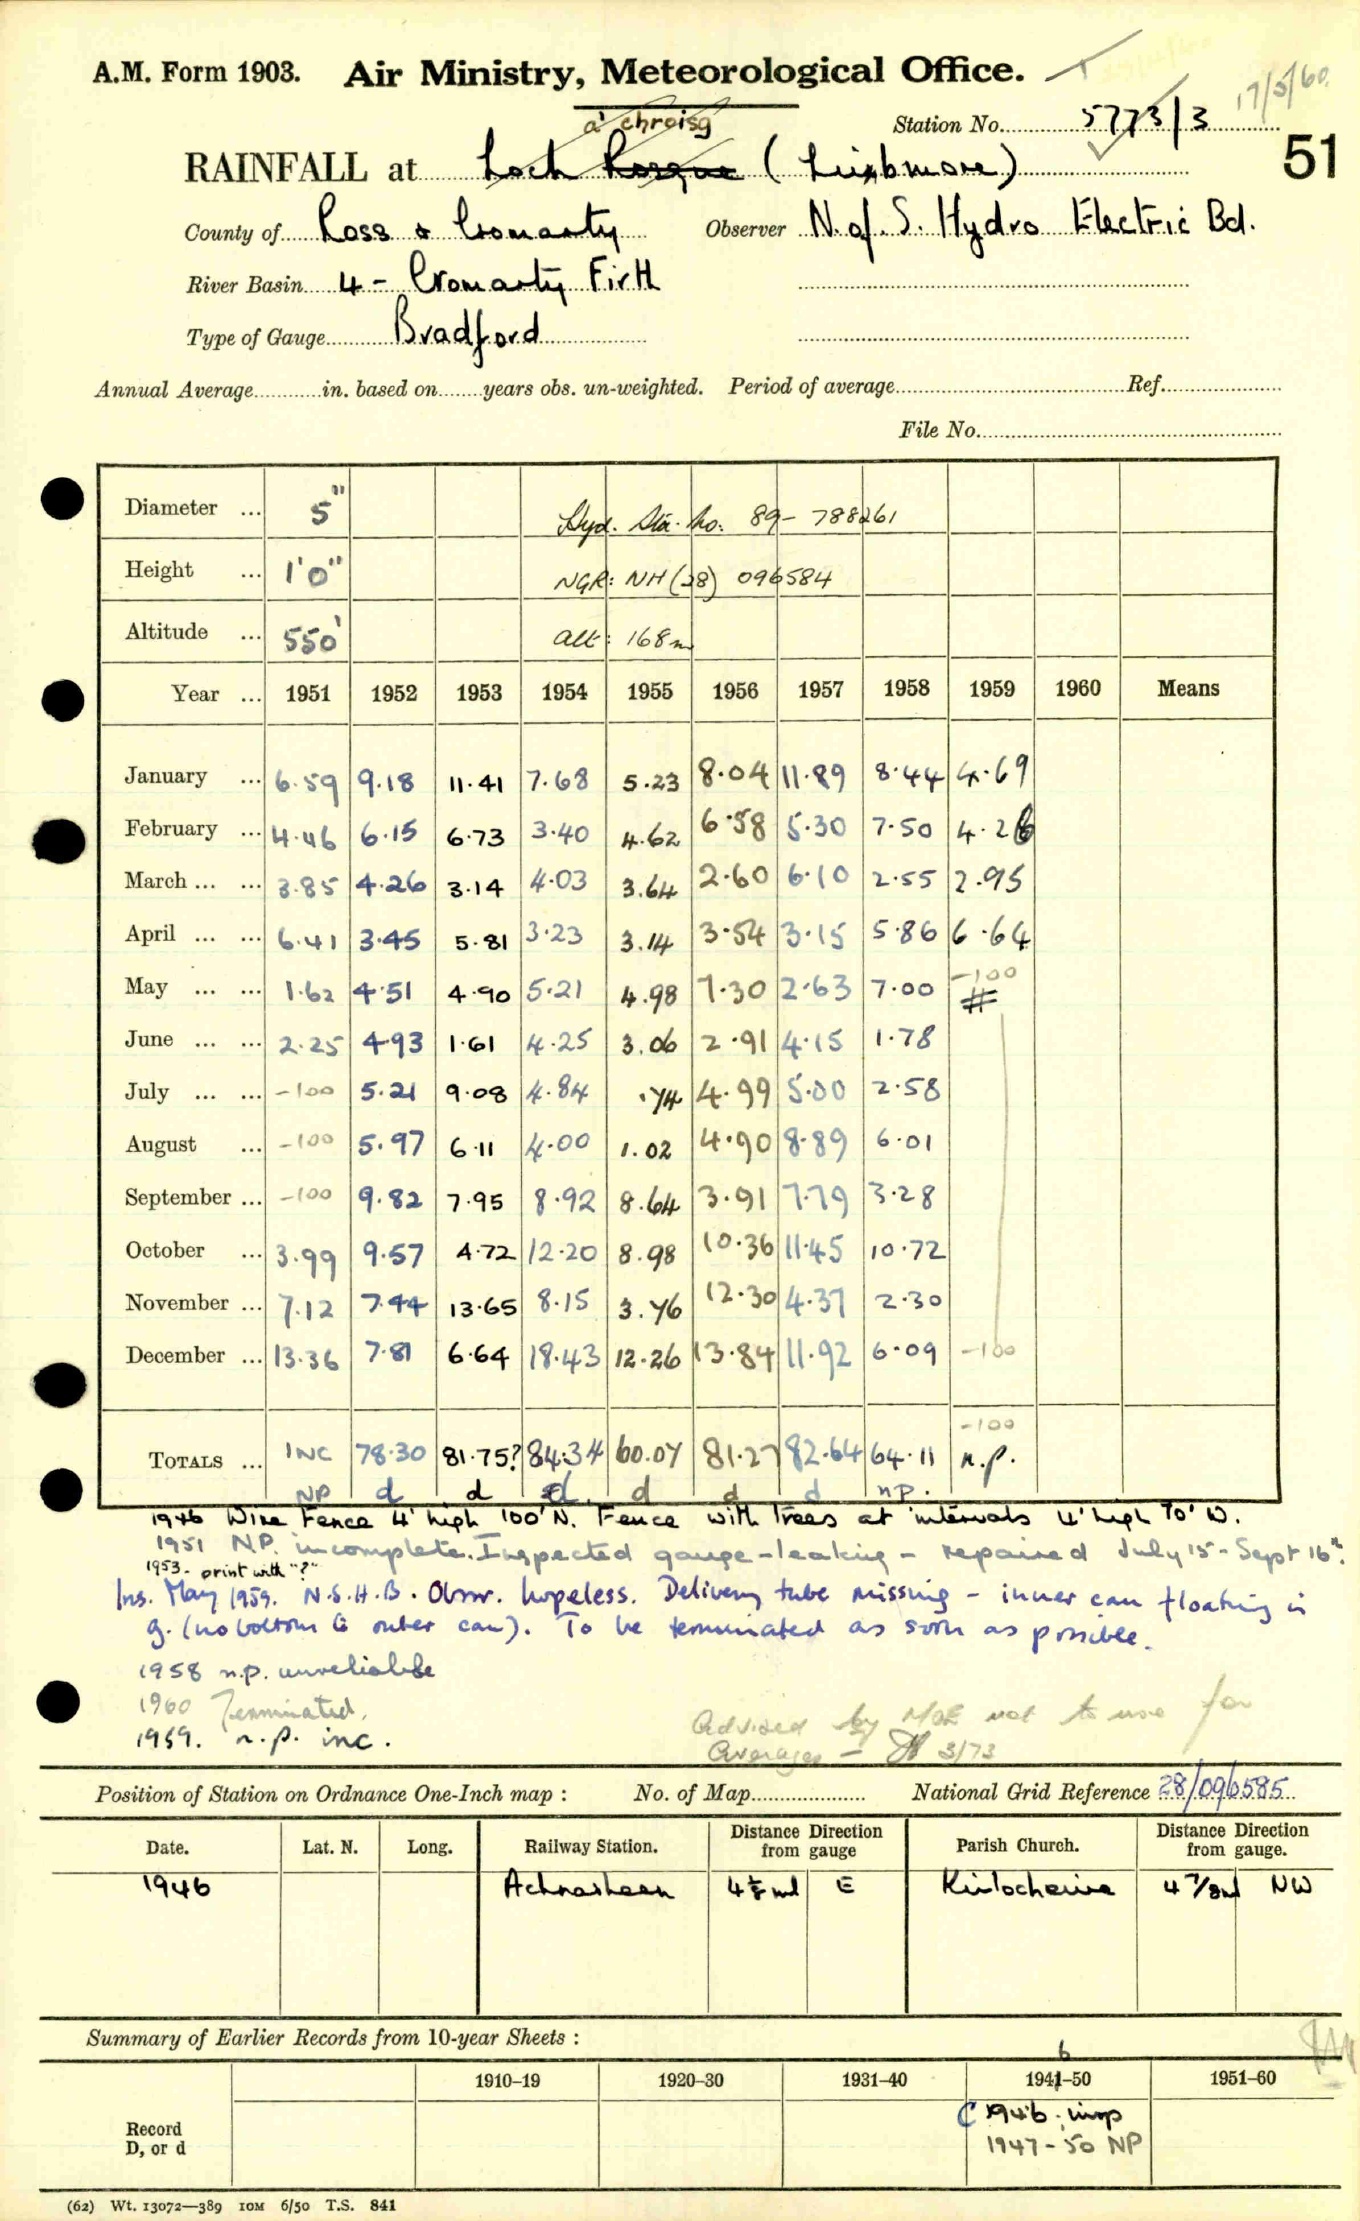 A.M. Form 1903. Air Ministry, Meteorological Office.
17/5/60
a' chroisg
Station No. 5773/3
51
RAINFALL at Loch Rosque (Luibmore)
County of Ross & Cromarty Observer N. of S. Hydro Electric Bd.
River Basin 4 - Cromarty Firth
Type of Gauge Bradford
Annual Average in. based on years obs. un-weighted. Period of average Ref.
File No.
Diameter ... 5" Hyd. Sta. No. 89- 788261
Height ... 1'0" NGR: NH (28) 096584
Altitude ... 550' alt: 168m
Year ... 1951 1952 1953 1954 1955 1956 1957 1958 1959 1960 Means
January ... 6.59 9.18 11.41 7.68 5.23 8.04 11.89 8.44 4.69
February ... 4.46 6.15 6.73 3.40 4.62 6.58 5.30 7.50 4.26
March ... ... 3.85 4.26 3.14 4.03 3.64 2.60 6.10 2.55 2.95
April ... ... 6.41 3.45 5.81 3.23 3.14 3.54 3.15 5.86 6.64
May ... ... 1.62 4.51 4.90 5.21 4.98 7.30 2.63 7.00 -100 #
June ... ... 2.25 4.93 1.61 4.25 3.06 2.91 4.15 1.78
July ... ... -100 5.21 9.08 4.84 .74 4.99 5.00 2.58
August ... -100 5.97 6.11 4.00 1.02 4.90 8.89 6.01
September ... -100 9.82 7.95 8.92 8.64 3.91 7.79 3.28
October ... 3.99 9.57 4.72 12.20 8.98 10.36 11.45 10.72
November ... 7.12 7.44 13.65 8.15 3.76 12.30 4.37 2.30
December ... 13.36 7.81 6.64 18.43 12.26 13.84 11.92 6.09 -100
-100
TOTALS ... INC 78.30 81.75? 84.34 60.07 81.27 82.64 64.11 n.p.
NP d d d d d d n.p.
1946 Wire Fence 4' high 100' N. Fence with trees at intervals 4' high 70' W.
1951 N.P. incomplete. Inspected gauge-leaking - repaired July 15 - Sept 16th.
1953 - print with "?"
Ins. May 1959. N.S.H.B. Obsvr. hopeless. Delivery tube missing - inner can floating in
g. (no bottom to outer can). To be terminated as soon as possible.
1958 n.p. unreliable
1960 Terminated.
1959. n.p. inc.
Advised by MOE not to use for
Averages - 3/73
Position of Station on Ordnance One-Inch map : No. of Map National Grid Reference 28/090585
Date. Lat. N. Long. Railway Station. Distance Direction from gauge Parish Church. Distance Direction from gauge.
1946 Achnasheen E Kinlochewe 4 7/8 ml NW
Summary of Earlier Records from 10-year Sheets :
6
1910–19 1920–30 1931–40 1941–50 1951–60
Record
D, or d
C 1946 imp
1947-50 NP
(62) Wt. 13072—389 10M 6/50 T.S. 841